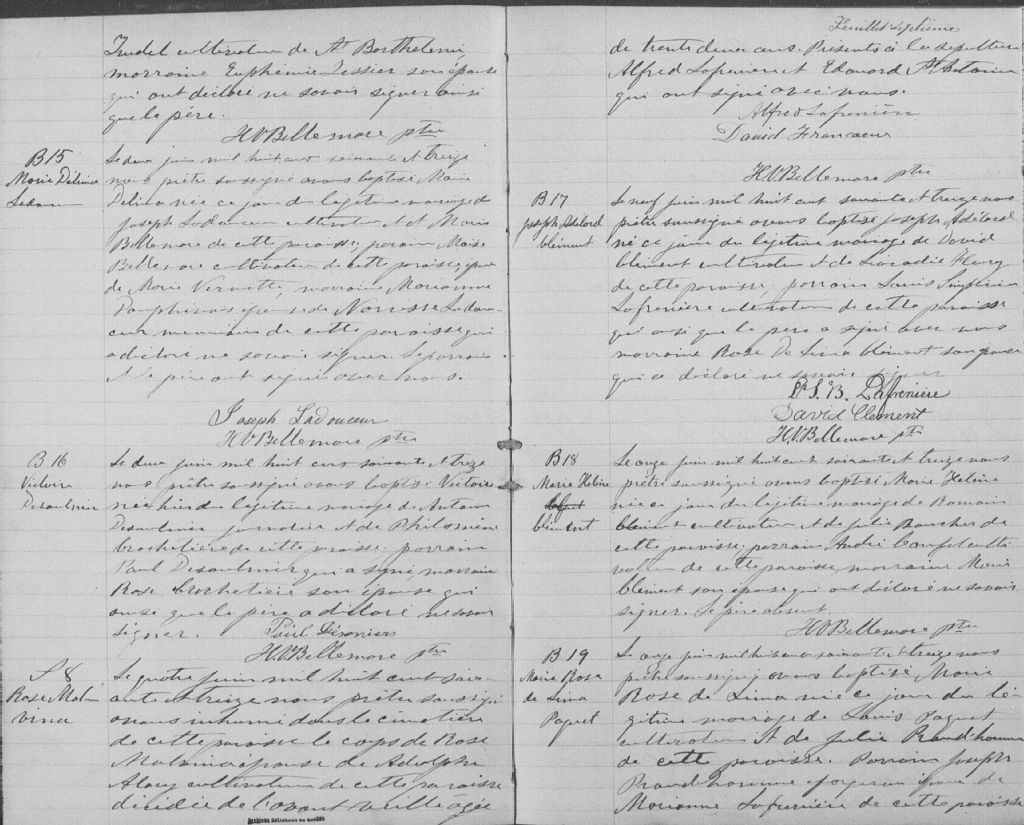 Trudel cultivateur de St Barthelemi
marraine Euphémie Lessier son épouse
qui ont déclaré ne savoir signer ainsi
que le père.
H.V. Bellemare ptre
B 15
Marie Délima
Ladouceur
Le deux juin mil huit cent soixante et treize
nous prêtre soussigné avons baptisé Marie
Delima née ce jour du légitime mariage de
Joseph Ladouceur cultivateur et de Marie
Bellemare de cette paroisse; parrain Moïse
Bellemare cultivateur de cette paroisse, époux
de Marie Vernette, marraine Marianne
Dauphinais épouse de Narcisse Ladou-
ceur menuisier de cette paroisse qui
a déclaré ne savoir signer. Le parrain
et le père ont signé avec nous.
Joseph Ladouceur
H.V. Bellemare ptre
B 16
Victoire
Desaulnier
Le deux juin mil huit cent soixante et treize
nous prêtre soussigné avons baptisé Victoire
née hier du légitime mariage de Antoine
Desaulnier journalier et de Philomène
Crochetière de cette paroisse; parrain
Paul Desaulnier qui a signé, marraine
Rose Crochetière son épouse qui
ainsi que le père a déclaré ne savoir
signer. Paul
H.V. Bellemare ptre
S 8
Rose Mal-
vina
Le quatre juin mil huit cent soix-
ante et treize nous prêtre soussigné
avons inhumé dans le cimetière
de cette paroisse le corps de Rose
Malvina épouse de Adolphe
Alary cultivateur de cette paroisse
décédée de l'avant veille âgée
Archives
Feuillet septième
de trente deux ans. Présents à la sépulture
Alfred Lafrenière et Edouard St Antoine
qui ont signé avec nous.
Alfred Lafrenière
David Francoeur
H.V. Bellemare ptre
B 17
Joseph Adélard
Clément
Le neuf juin mil huit cent soixante et treize nous
prêtre soussigné avons baptisé Joseph Adélard
né ce jour du légitime mariage de David
Clément cultivateur et de Léocadie Fleury
de cette paroisse, parrain Louis
Lafrenière cultivateur de cette paroisse
qui ainsi que le père a signé avec nous
marraine Rose De Lima Clément son épouse
qui a déclaré ne savoir signer
L. S. B. Lafrenière
David Clément
H.V. Bellemare ptre
B 18
Marie Helène
Clément
Le onze juin mil huit cent soixante et treize nous
prêtre soussigné avons baptisé Marie Helène
née ce jour du légitime mariage de Romain
Clément cultivateur et de Julie Boucher de
cette paroisse, parrain André culti
vateur de cette paroisse, marraine Marie
Clément son épouse qui ont déclaré ne savoir
signer. Le père absent.
H.V. Bellemare ptre
B 19
Marie Rose
de Lima
Paquet
Le onze juin mil huit cent soixante et treize nous
prêtre soussigné avons baptisé Marie
Rose de Lima née ce jour du lé-
gitime mariage de Louis Paquet
cultivateur et de Julie Prud'homme
de cette paroisse. Parrain Joseph
Prud'homme forgeron époux de
Marianne Lafrenière de cette paroisse